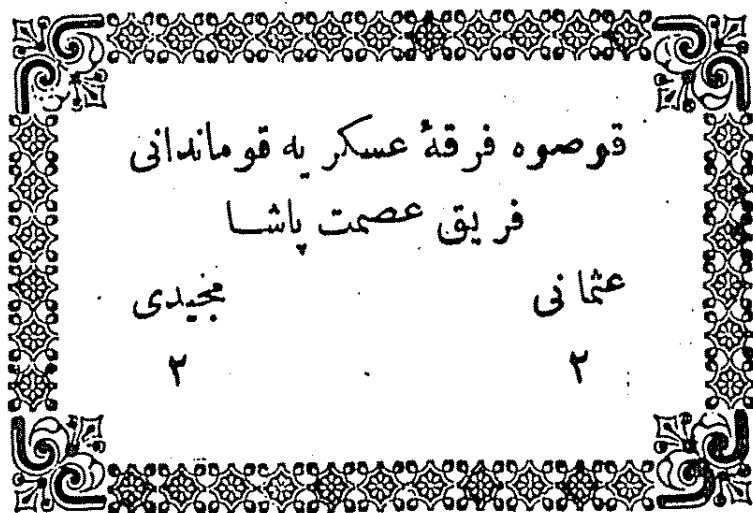 قوصوه فرقهٔ عسكریه قوماندانی
فریق عصمت پاشا
عثمانی مجیدی
٢ ٢